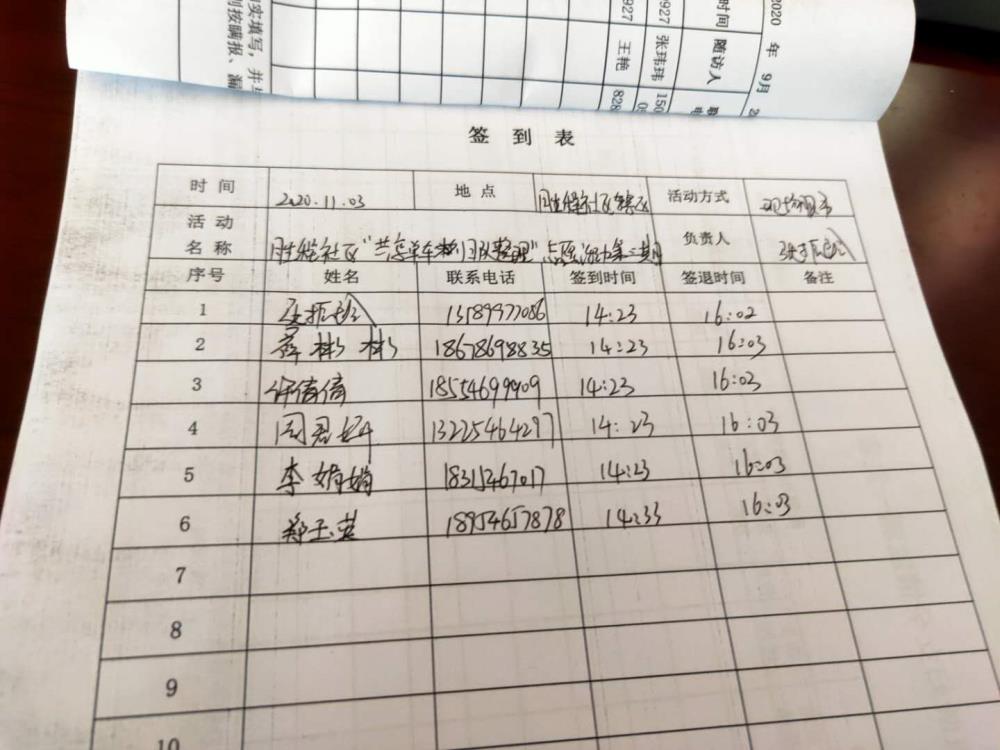 2020 年 9月 2
时间 随访人
0927 张玮玮 150
0927 王艳 828
实填写，并
按瞒报、漏
签到表
时间 2020.11.03 地点 胜锦社区辖区 活动方式
活动名称 社区"共享单车 团队整理"志愿活动第三期 负责人
序号 姓名 联系电话 签到时间 签退时间 备注
1 13589977086 14:23 16:02
2 薛彬彬 18678698835 14:23 16:03
3 许倩倩 18554699909 14:23 16:03
4 周君婷 13225464297 14:23 16:03
5 李娟娟 18315467017 14:23 16:03
6 郑玉英 18954657878 14:33 16:03
7
8
9
10